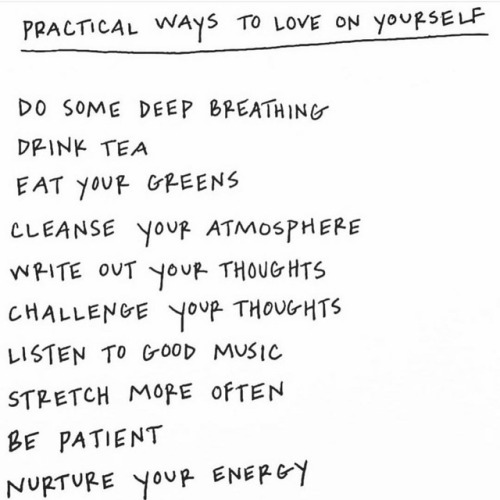 PRACTICAL WAYS TO LOVE ON YOURSELF
DO SOME DEEP BREATHING
DRINK TEA
EAT YOUR GREENS
CLEANSE YOUR ATMOSPHERE
WRITE OUT YOUR THOUGHTS
CHALLENGE YOUR THOUGHTS
LISTEN TO GOOD MUSIC
STRETCH MORE OFTEN
BE PATIENT
NURTURE YOUR ENERGY